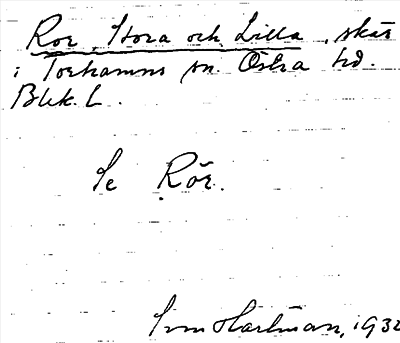 Ror, Stora och Lilla, skär
i Torhamns sn. Östra hd.
Blek. L.
Se Rör.
Hartman, 1932